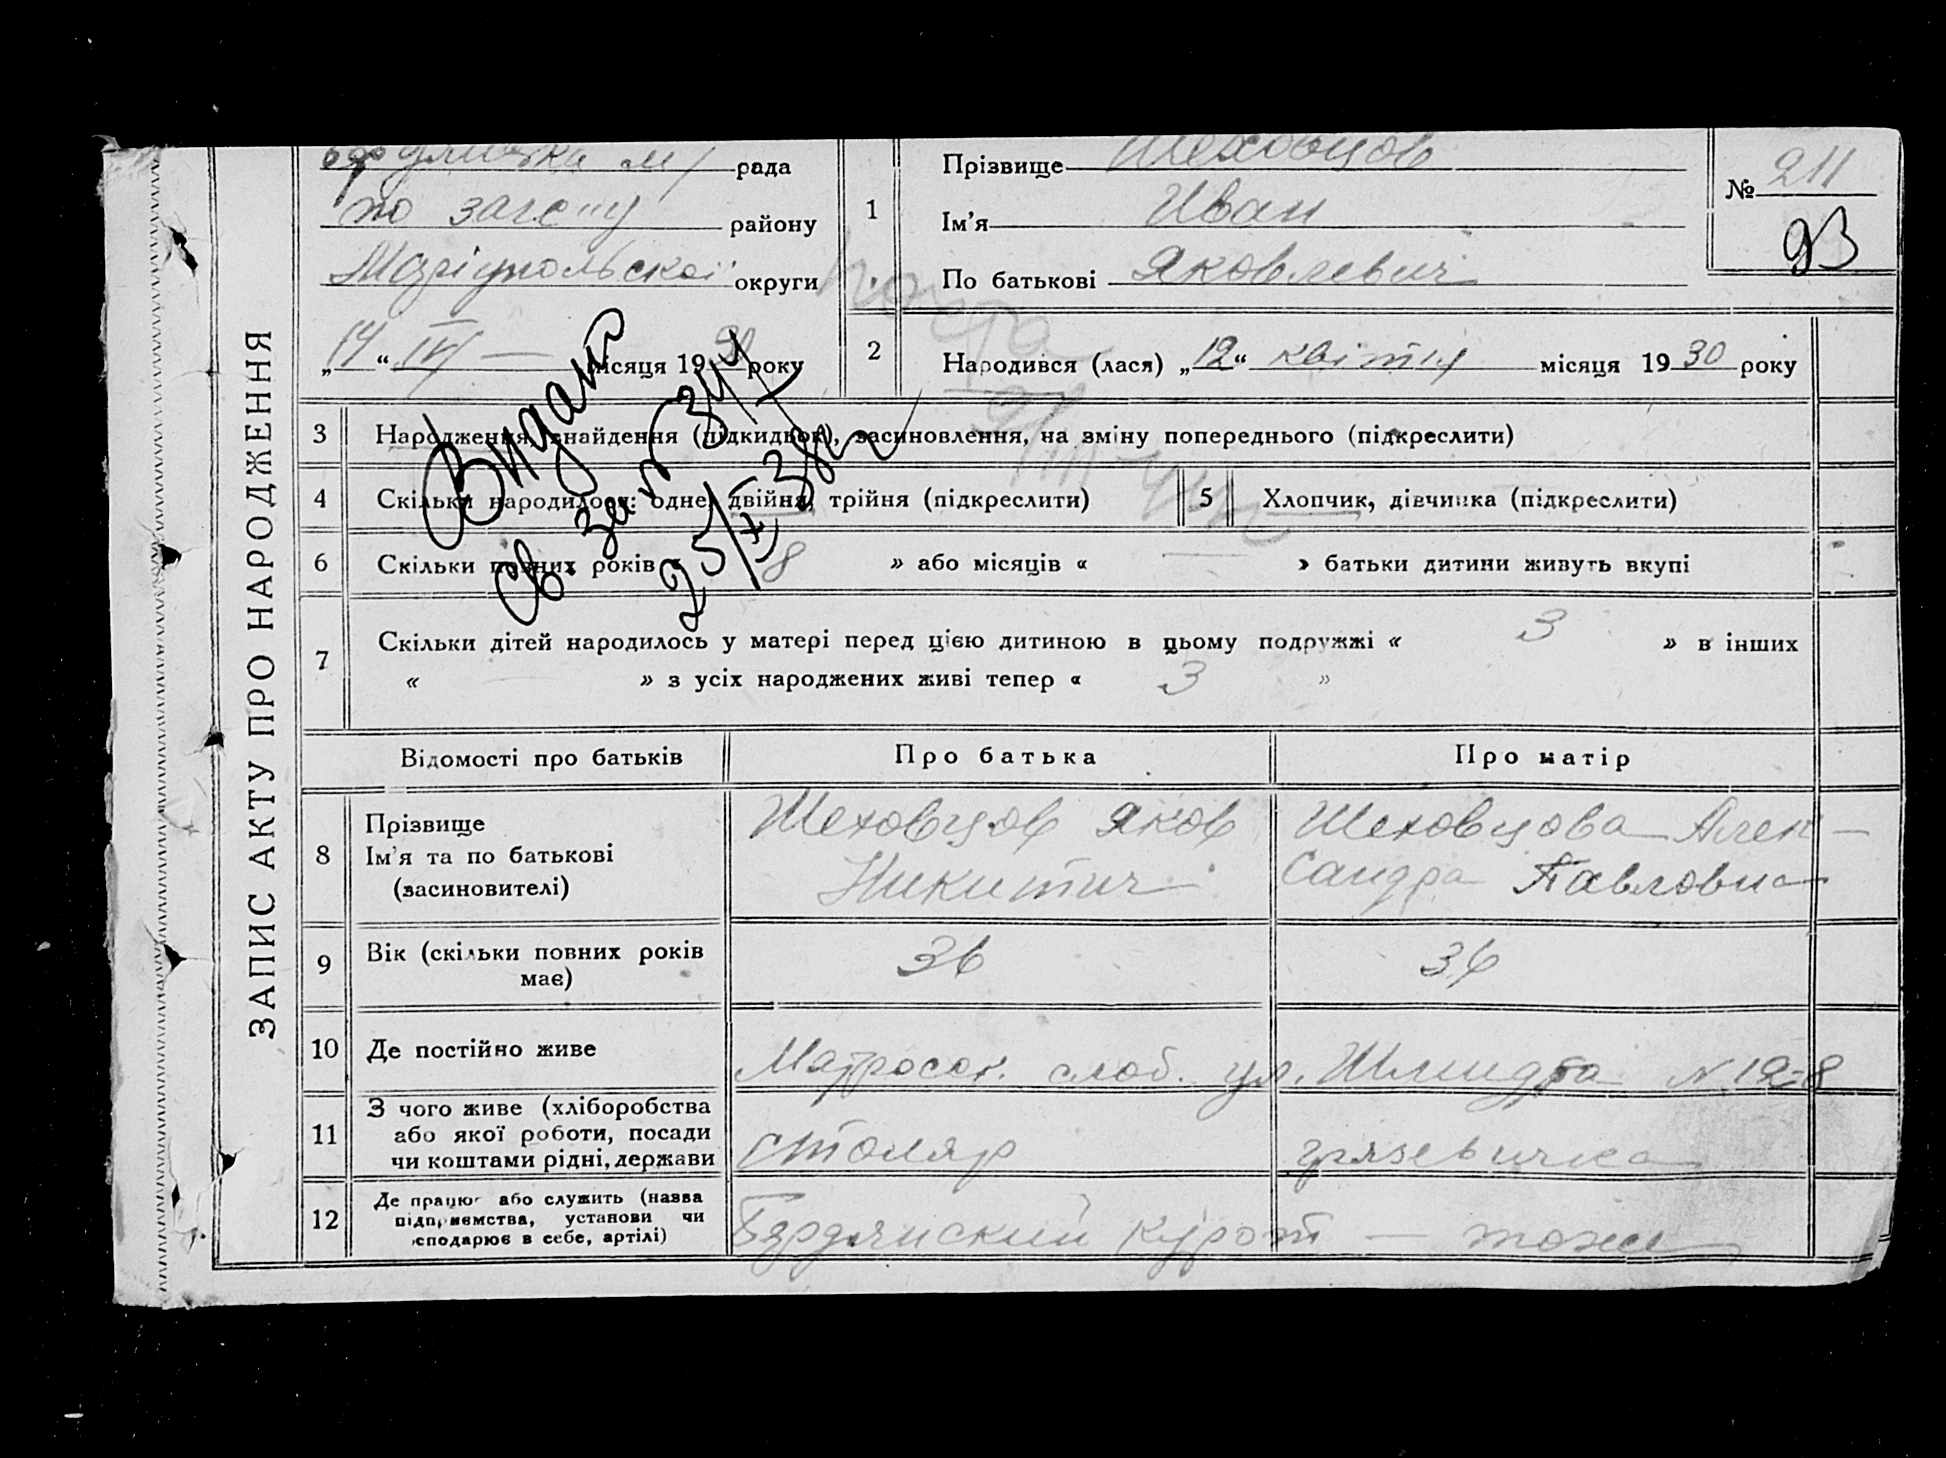 ЗАПИС АКТУ ПРО НАРОДЖЕННЯ
рада
по загсу району
Маріупольської округи
„14“ IV — місяця 1930 року
1
Прізвище Шеховцов
Ім'я Иван
По батькові Яковлевич
№ 211
93
2
Народився (лася) „12“ квітня місяця 1930 року
3 Народження, знайдення (підкидьок), засиновлення, на зміну попереднього (підкреслити)
4 Скільки народилося: одне, двійня, трійня (підкреслити)
5 Хлопчик, дівчинка (підкреслити)
6 Скільки повних років „ 8 » або місяців « — » батьки дитини живуть вкупі
7 Скільки дітей народилось у матері перед цією дитиною в цьому подружжі « 3 » в інших
« — » з усіх народжених живі тепер « 3 »
Видано
св. за №
25/XI
Відомості про батьків Про батька Про матір
8 Прізвище
Ім'я та по батькові
(засиновителі)
Шеховцов Яков
Никитич
Шеховцова Алек-
сандра Павловна
9 Вік (скільки повних років
має)
36 36
10 Де постійно живе Матросск. слоб. ул. Шмидта N 128
11 З чого живе (хліборобства
або якої роботи, посади
чи коштами рідні, держави
столяр грязевичка
12 Де працює або служить (назва
підприємства, установи чи
господарює в себе, артілі)
Бердянский Курорт — тоже